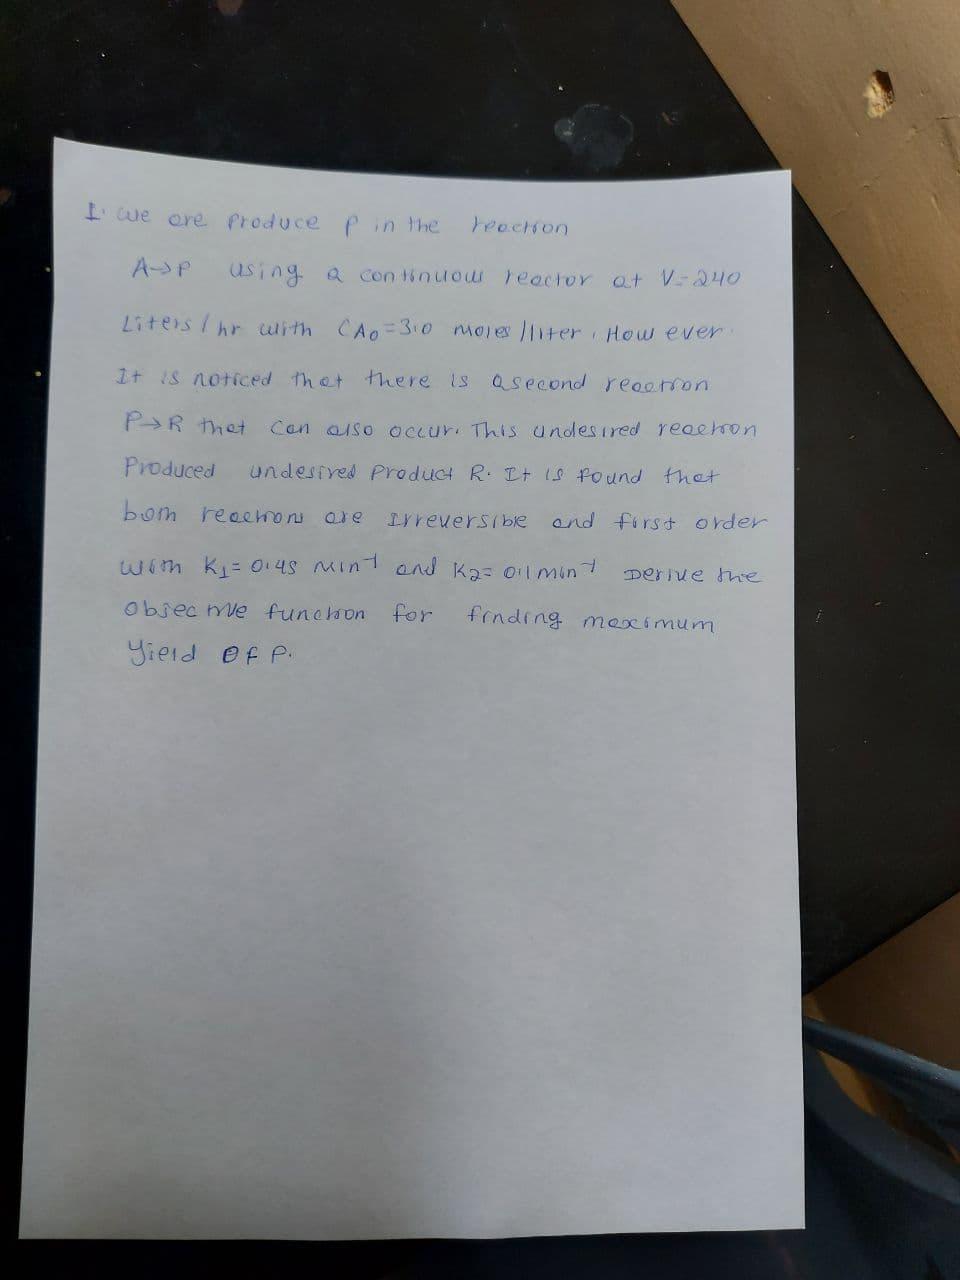 1. we are produce P in the reaction
A→P using a continuous reactor at V=240
Liters / hr with CA0=3.0 moles /liter. How ever.
It is noticed that there is a second reaction
P→R that can also occur. This undesired reaction
Produced undesired Product R. It is found that
both reactions are Irreversible and first order
with K1= 0.45 min-1 and K2= 0.1 min-1 Derive the
objective function for finding maximum
yield of P.